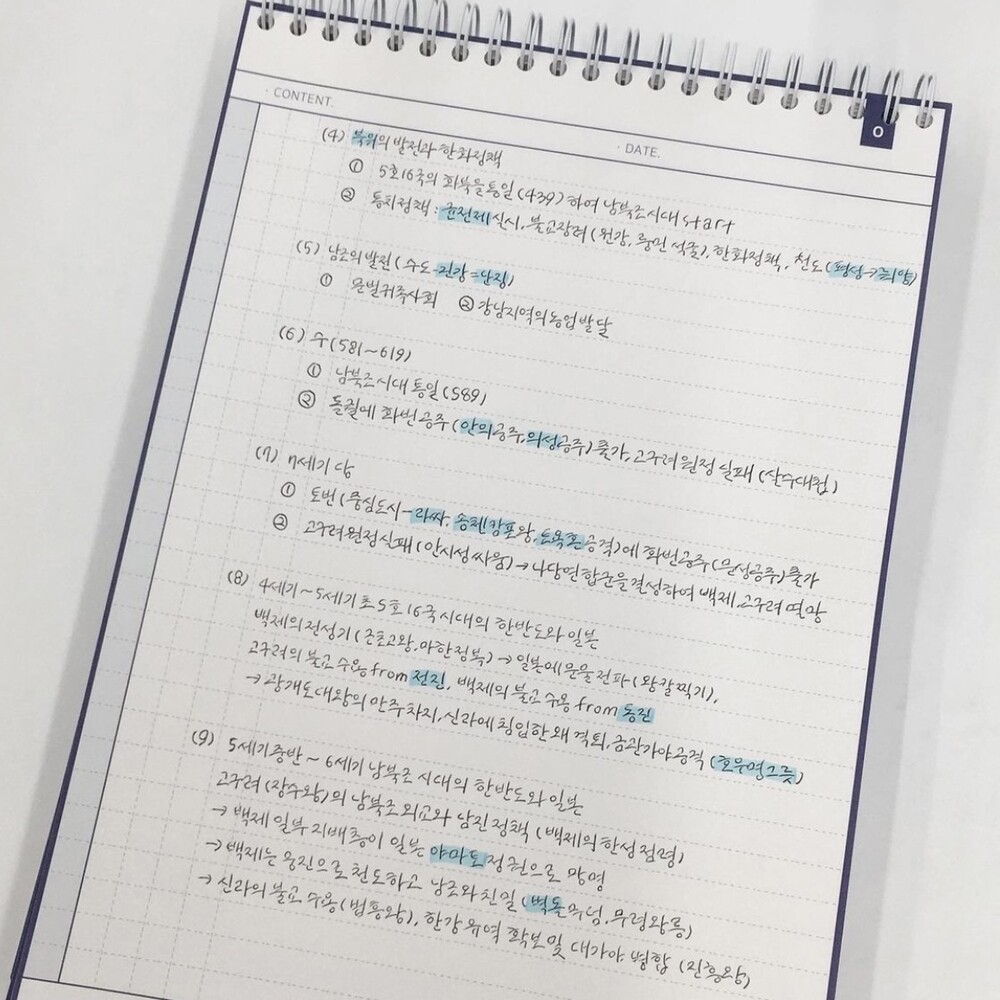 · CONTENT.
· DATE.
0
(4) 북위의 발전과 한화정책
① 5호16국의 화북을 통일(439)하여 남북조시대 start
② 통치정책 : 균전제 실시, 불교장려(윈강, 룽먼 석굴), 한화정책, 천도(평성→뤄양)
(5) 남조의 발전(수도-건강=난징)
① 문벌귀족사회 ② 강남지역의 농업발달
(6) 수(581~619)
① 남북조시대 통일(589)
② 돌궐에 화번공주(안의공주, 의성공주)출가, 고구려 원정 실패(살수대첩)
(7) 7세기 당
① 토번(중심도시-라싸, 송첸캄포왕, 토욕혼 공격)에 화번공주(문성공주)출가
② 고구려 원정실패(안시성싸움)→나당연합군을 결성하여 백제, 고구려 멸망
(8) 4세기~5세기초 5호16국 시대의 한반도와 일본
백제의 전성기(근초고왕, 마한정복)→일본에 문물 전파(왕칼찍기),
고구려의 불교 수용 from 전진, 백제의 불교 수용 from 동진
→ 광개토대왕의 만주차지, 신라에 침입한 왜 격퇴, 금관가야 공격(호우명그릇)
(9) 5세기중반~6세기 남북조 시대의 한반도와 일본
고구려(장수왕)의 남북조 외교와 남진 정책(백제의 한성 점령)
→ 백제 일부 지배층이 일본 야마토 정권으로 망명
→백제는 웅진으로 천도하고 남조와 친밀(벽돌무덤, 무령왕릉)
→ 신라의 불교 수용(법흥왕), 한강 유역 확보 및 대가야 병합 (진흥왕)